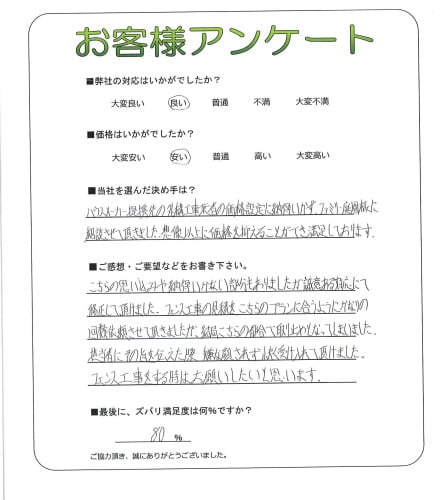 お客様アンケート
■弊社の対応はいかがでしたか?
大変良い 良い 普通 不満 大変不満
■価格はいかがでしたか?
大変安い 安い 普通 高い 大変高い
■当社を選んだ決め手は?
ハウスメーカー提携先の外構工事業者の価格設定に納得いかず、ファミリー庭園様に
相談させて頂きました。想像以上に価格を抑えることができ満足しております。
■ご感想・ご要望などをお書き下さい。
こちらの思い込みや納得いかない部分もありましたが誠意ある対応にて
修正して頂けました。フェンス工事の見積をこちらのプランに合うようにかなりの
回数依頼させて頂きましたが、結局こちらの都合で取り止めとなってしまいました。
担当者にその旨を伝えた際、嫌な顔されず快く受け入れて頂けました。
フェンス工事をする時は大願いしたいと思います。
■最後に、ズバリ満足度は何%ですか?
80 %
ご協力頂き、誠にありがとうございました。